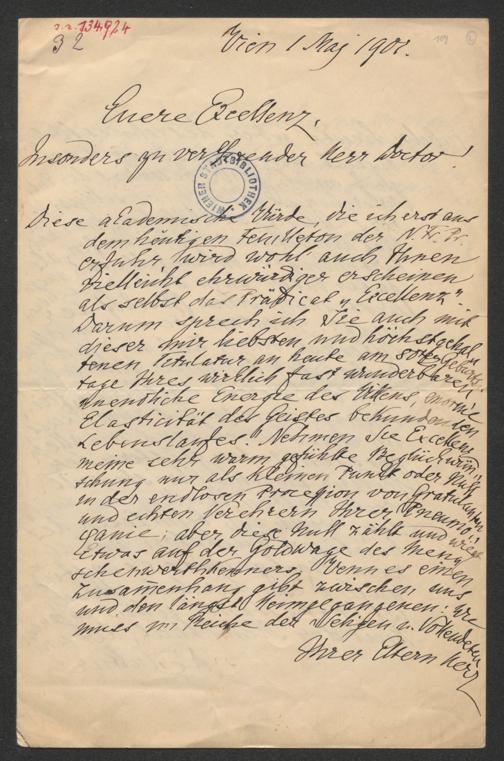 J. N. 134924
92
109
Wien 1 Maj 1901.
Euere Excellenz,
Insonders zu verehrender Herr Doctor!
WIENER STADTBIBLIOTHEK
Diese academische Würde, die ich erst aus
dem heutigen Feuilleton der N. Fr. Pr.
erfuhr, wird wohl auch Ihnen
vielleicht ehrwürdiger erscheinen
als selbst das Prädicat „Excellenz“.
Darum sprech ich Sie auch mit
dieser mir liebsten und höchstgehal-
tenen Titulatur an heute am 80ten Geburts-
tage Ihres wirklich fast wunderbaren
unendliche Energie des Willens, enorme
Elasticität des Geistes bekundenden
Lebenslaufes. Nehmen Sie Excellenz
meine sehr warm gefühlte Beglückwün-
schung nur als kleinen Punkt oder Null
in der endlosen Procession von Gratulanten
und echten Verehrern Ihrer
; aber diese Null zählt und wiegt
Etwas auf der Goldwage des Men-
schenwerthkenners. Wenn es einen
Zusammenhang gibt zwischen uns
und den längst Heimgegangenen: wie
muss im Reiche der Seligen u. Vollendeten
Ihrer Eltern Herz